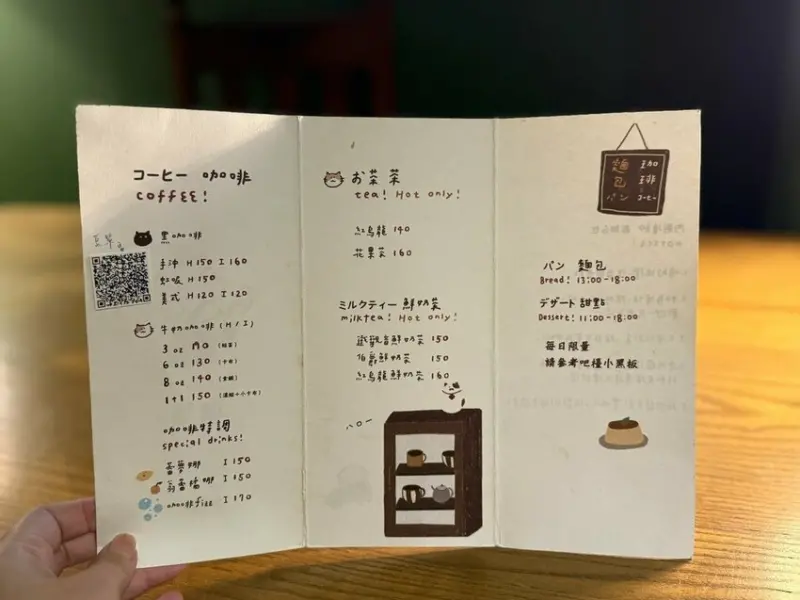 コーヒー 咖啡
coffee!
豆單
黑咖啡
手沖 H 150 I 160
虹吸 H 150
美式 H 120 I 120
牛奶咖啡 (H/I)
3 oz 110
6 oz 130
8 oz 140
1+1 150
咖啡特調
special drinks!
I 150
I 150
咖啡fizz I 170
お茶 茶
tea! Hot only!
紅烏龍 140
花果茶 160
ミルクティー 鮮奶茶
milktea! Hot only!
鐵觀音鮮奶茶 150
伯爵鮮奶茶 150
紅烏龍鮮奶茶 160
ハロー
珈琲 コーヒー
麵包 パン
パン 麵包
Bread! 13:00-18:00
デザート 甜點
Dessert! 11:00-18:00
每日限量
請參考吧檯小黑板